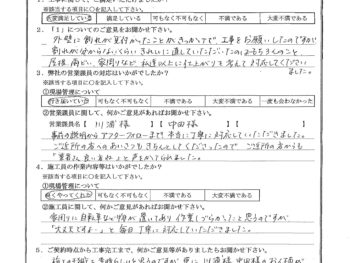 ※該当する項目に○を記入して下さい。
大変満足している 満足している 可もなく不可もなく 不満である 大変不満である
2. 「1」についてのご意見をお聞かせ下さい。
外壁に割れが見付かったことがきっかけで、工事をお願いしたのですが
割れが分からないくらいきれいに直していただいた
屋根、雨どい、
ました。
3. 弊社の営業員の対応はいかがでしたか?
※該当する項目に○を記入して下さい。
①現場管理について
行き届いていた 可もなく不可もなく 不満である 大変不満である 一度も会わなかった
②営業員に関して、何かご意見があればお聞かせ下さい。
営業員名【 川浦様 】【 中田様 】
事前の説明からアフターフォローまで本当に丁寧に対応していただきました。
ご近所の方へのあいさつもきちんとして下さったので ご近所の方からも
「業者さん良いわね」と声をかけられました。
4. 施工員の作業内容等はいかがでしたか?
※該当する項目に○を記入して下さい。
①現場管理について
良くやってくれた 可もなく不可もなく 不満である 大変不満である
②施工員に関して、何かご意見があればお聞かせ下さい。
家周りに自転車など物が置いてあり 作業しづらかったと思うのですが
「大丈夫ですよ」と毎日丁寧に対応していただきました。
5. ご契約時点から工事完工まで、何かご意見等がありましたらお聞かせ下さい。